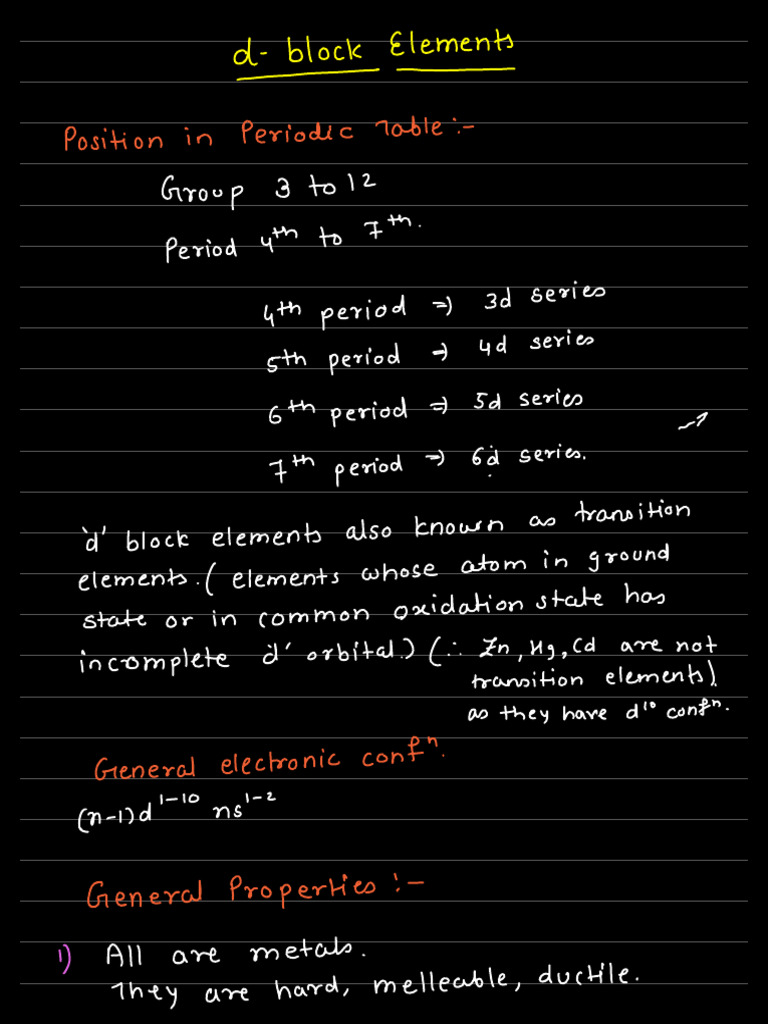 d- block Elements
Position in Periodic Table :-
Group 3 to 12
Period 4th to 7th.
4th period => 3d series
5th period => 4d series
6th period => 5d series
7th period => 6d series.
'd' block elements also known as transition
elements. ( elements whose atom in ground
state or in common oxidation state has
incomplete 'd' orbital.) (∴ Zn, Hg, Cd are not
transition elements)
as they have d¹⁰ confⁿ.
General electronic confⁿ.
(n-1)d¹⁻¹⁰ ns¹⁻²
General Properties :-
1) All are metals.
They are hard, melleable, ductile.